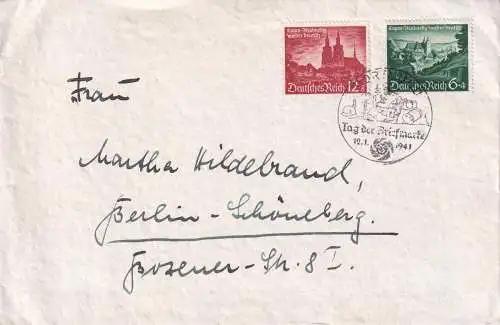 Eupen-Malmedy wieder Deutsch
Deutsches Reich 12+8
Eupen-Malmedy wieder Deutsch
Deutsches Reich 6+4
Tag der Briefmarke
12.1. 1941
Frau
Martha Hildebrand,
Berlin-Schöneberg.
Bozener-Str. 8 I.